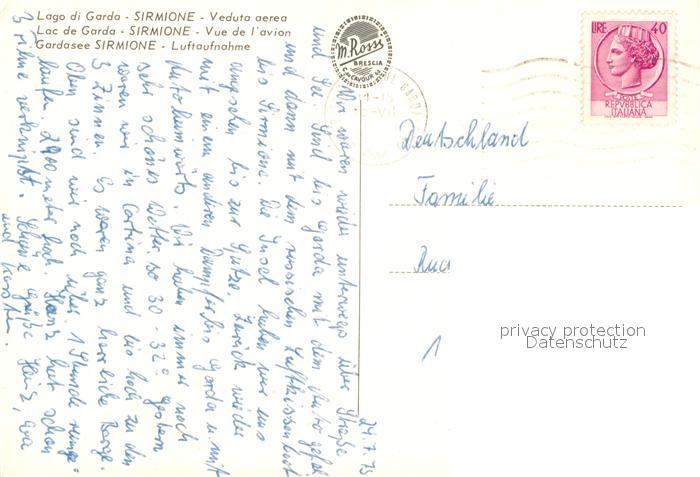 Lago di Garda - SIRMIONE - Veduta aerea
Lac de Garda - SIRMIONE - Vue de l'avion
Gardasee SIRMIONE - Luftaufnahme
M. Rossi
BRESCIA
C. so CAVOUR
LIRE 40
POSTE
REPVBBLICA
ITALIANA
24.7.73
Wir waren wieder unterwegs über Straße
und See. Sind bis Garda mit dem Auto gefah
und dann mit dem russischen Luftkissenboot
bis Sirmione. Die Insel haben wir uns
angesehen bis zur Spitze. Zurück wieder
mit einem anderen Dampfer bis Garda u. mit
Auto heimwärts. Wir haben immer noch
sehr schönes Wetter. so 30 - 32° gestern
waren wir in Cortina und bis hoch zu den
3 Zinnen. Es waren ganz herrliche Berge.
Oben sind wir noch über 1 Stunde rumge-
laufen. 2400 meter hoch. Heinz hat schon
3 Filme verknipst. Schöne Grüße Heinz, Eva
und Karsten.
Deutschland
Familie
1
privacy protection
Datenschutz